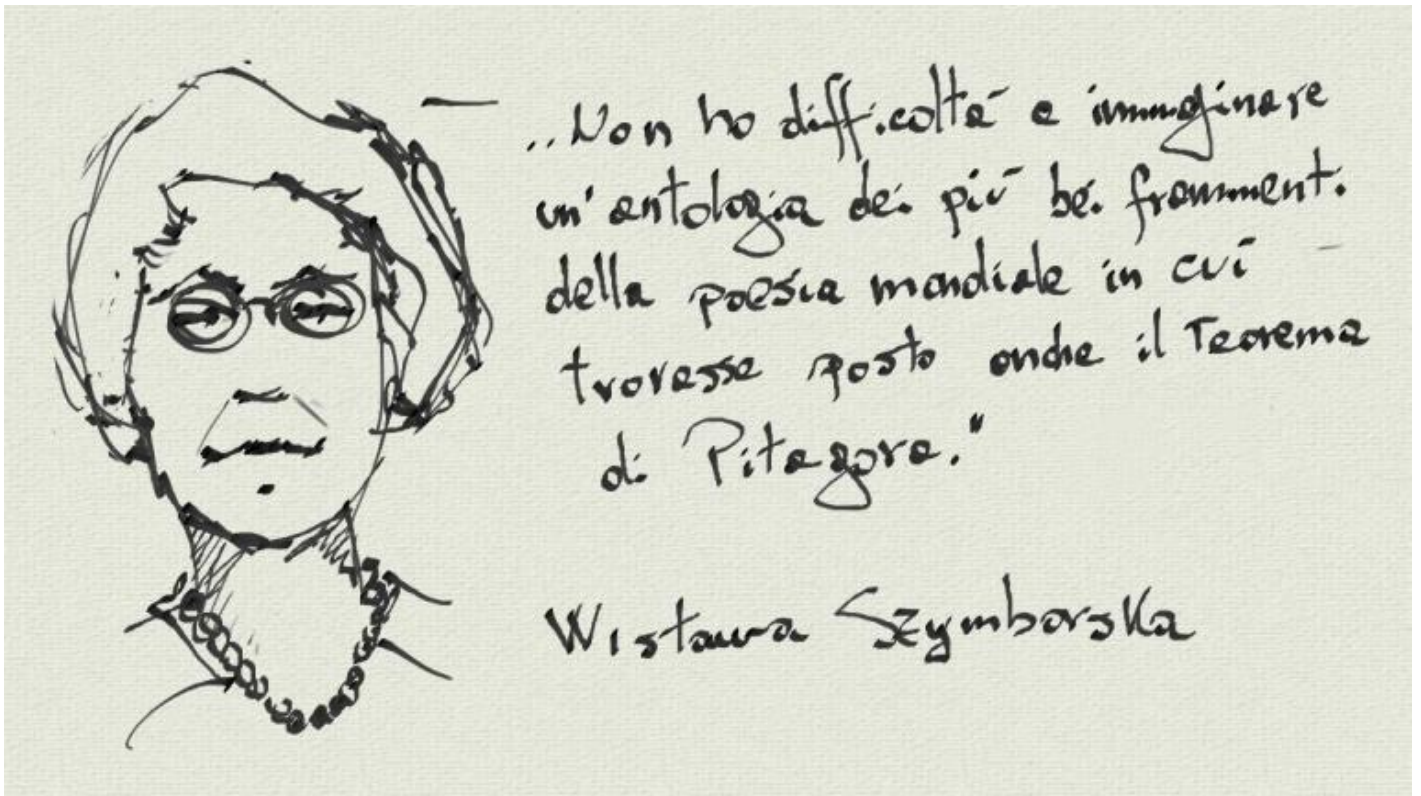 „Non ho difficoltà a immaginare
un'antologia dei più bei frammenti
della poesia mondiale in cui
trovasse posto anche il Teorema
di Pitagora."
Wistawa Szymborska